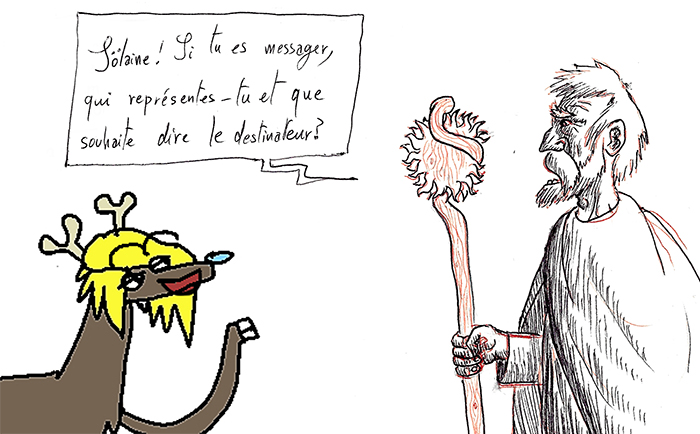 Sölaine! Si tu es messager,
qui représentes-tu et que
souhaite dire le destinateur?